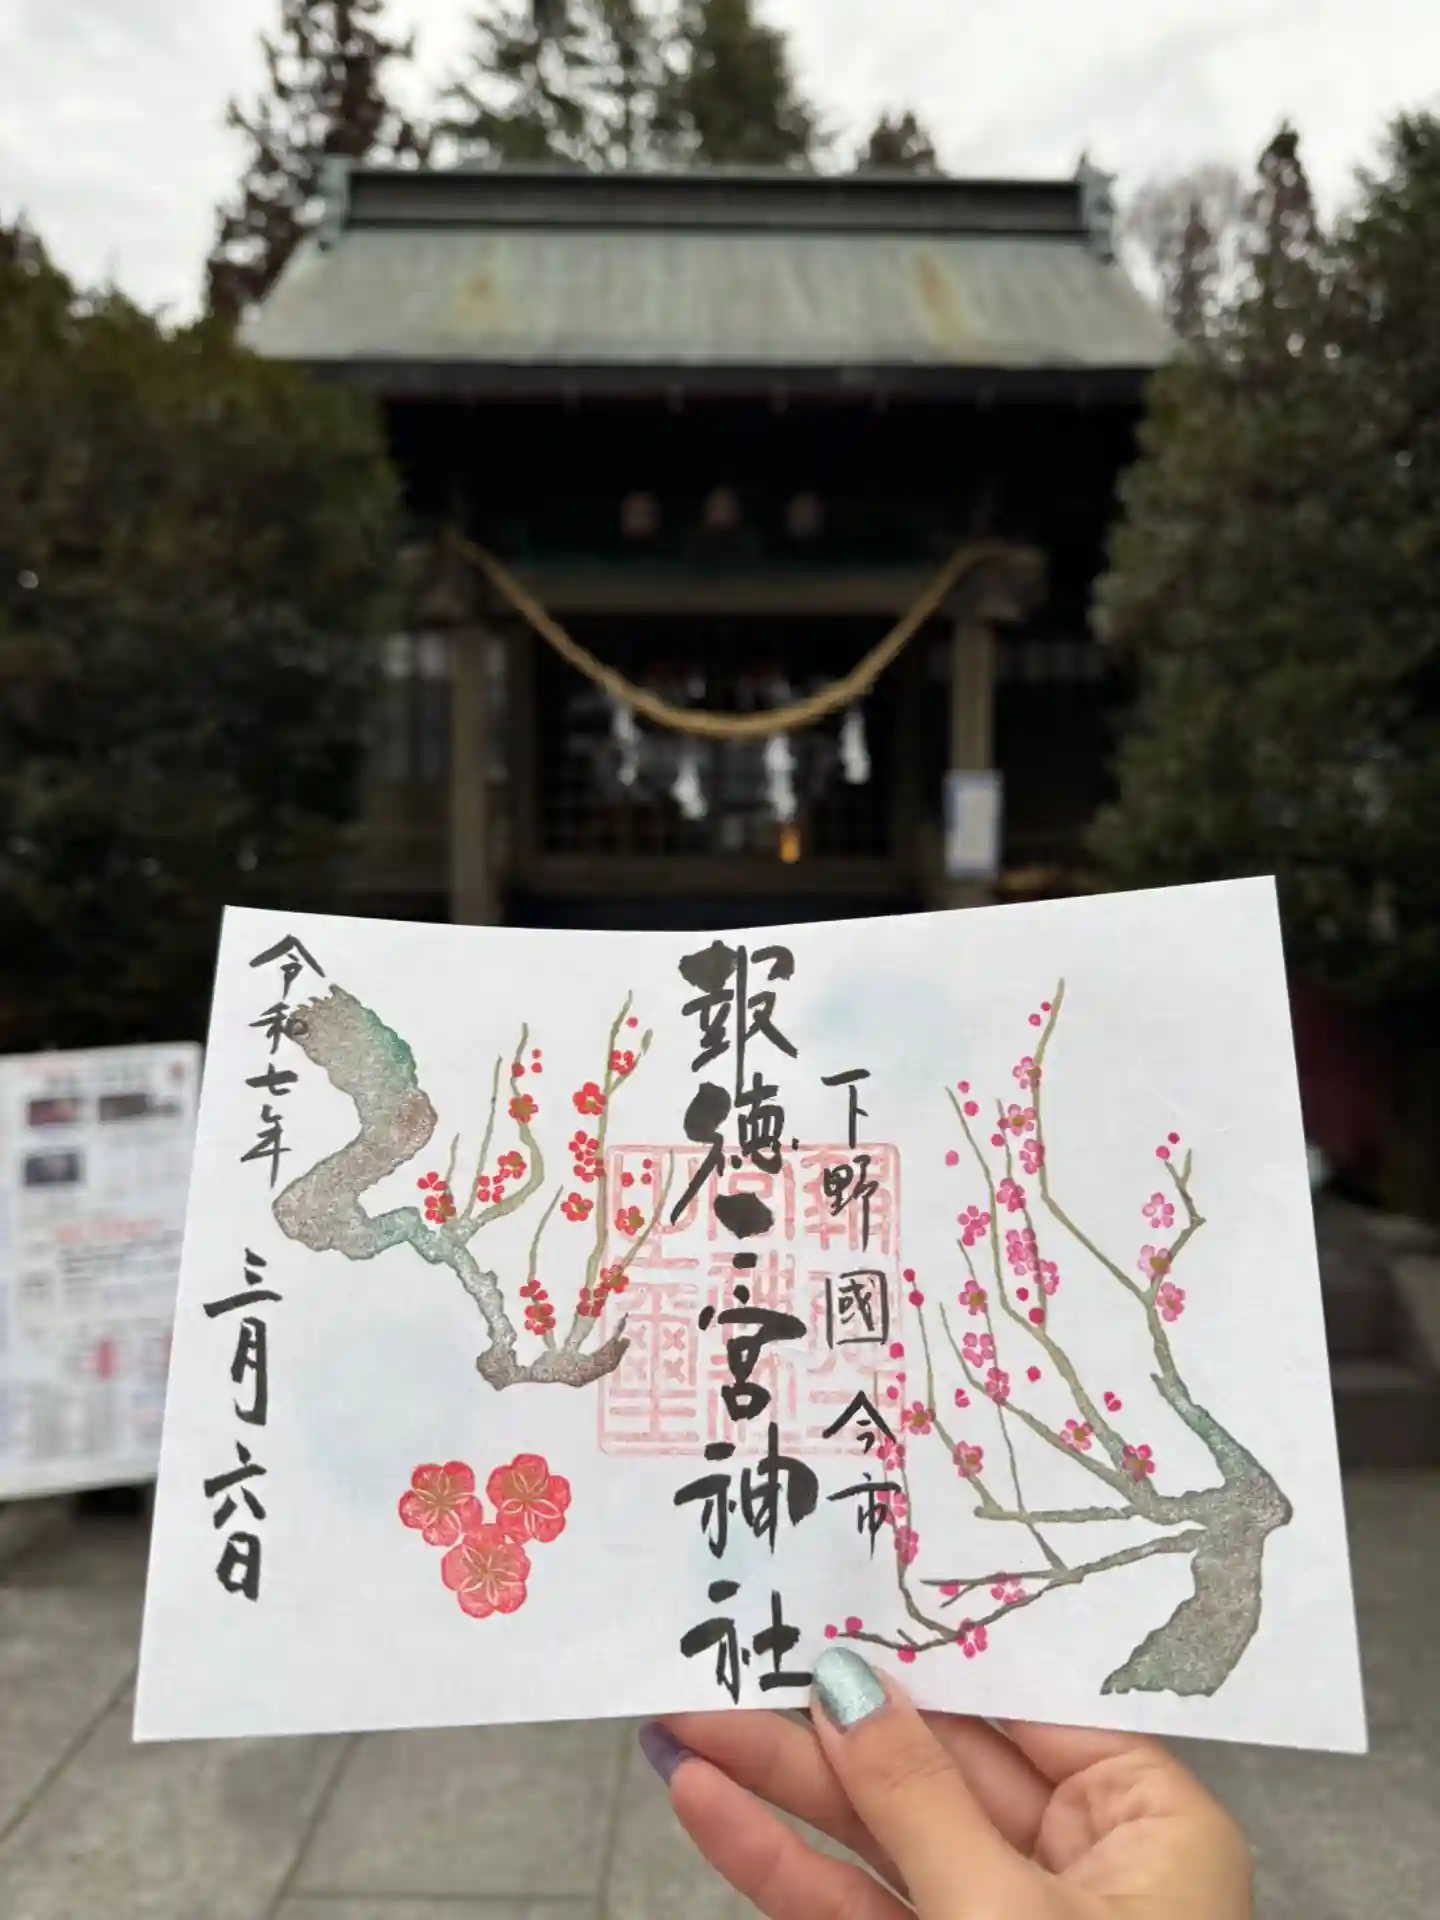 下野國 今市
報徳二宮神社
令和七年 三月六日